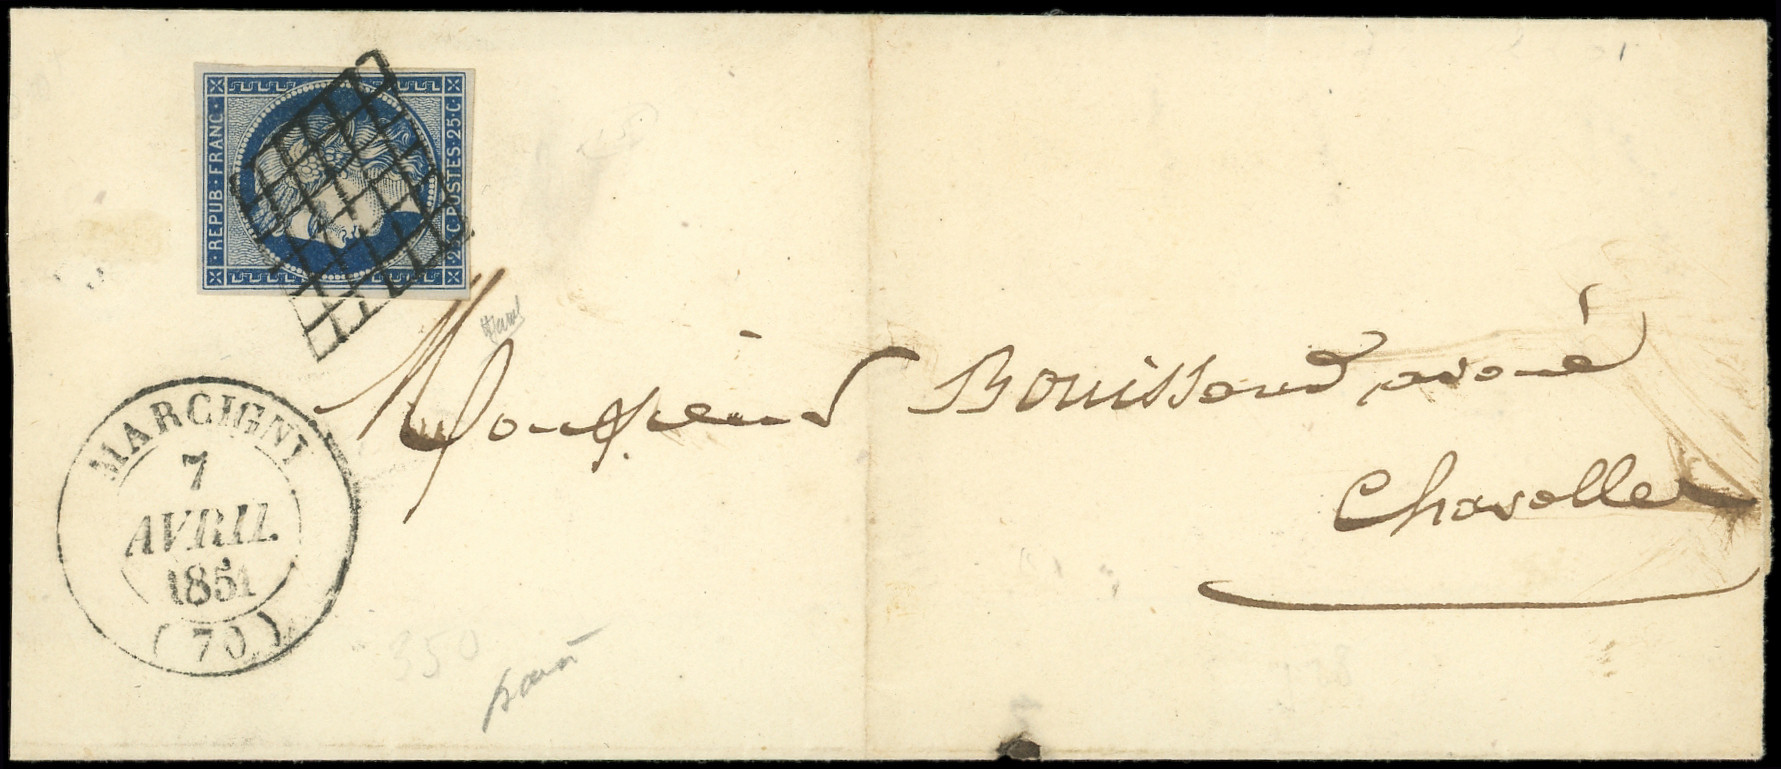 · REPUB · FRANC ·
· 25 · C · POSTES · 25 · C ·
MARCIGNY
7
AVRIL
1851
(70)
Monsieur Bouissoud avoué
Charolles
350